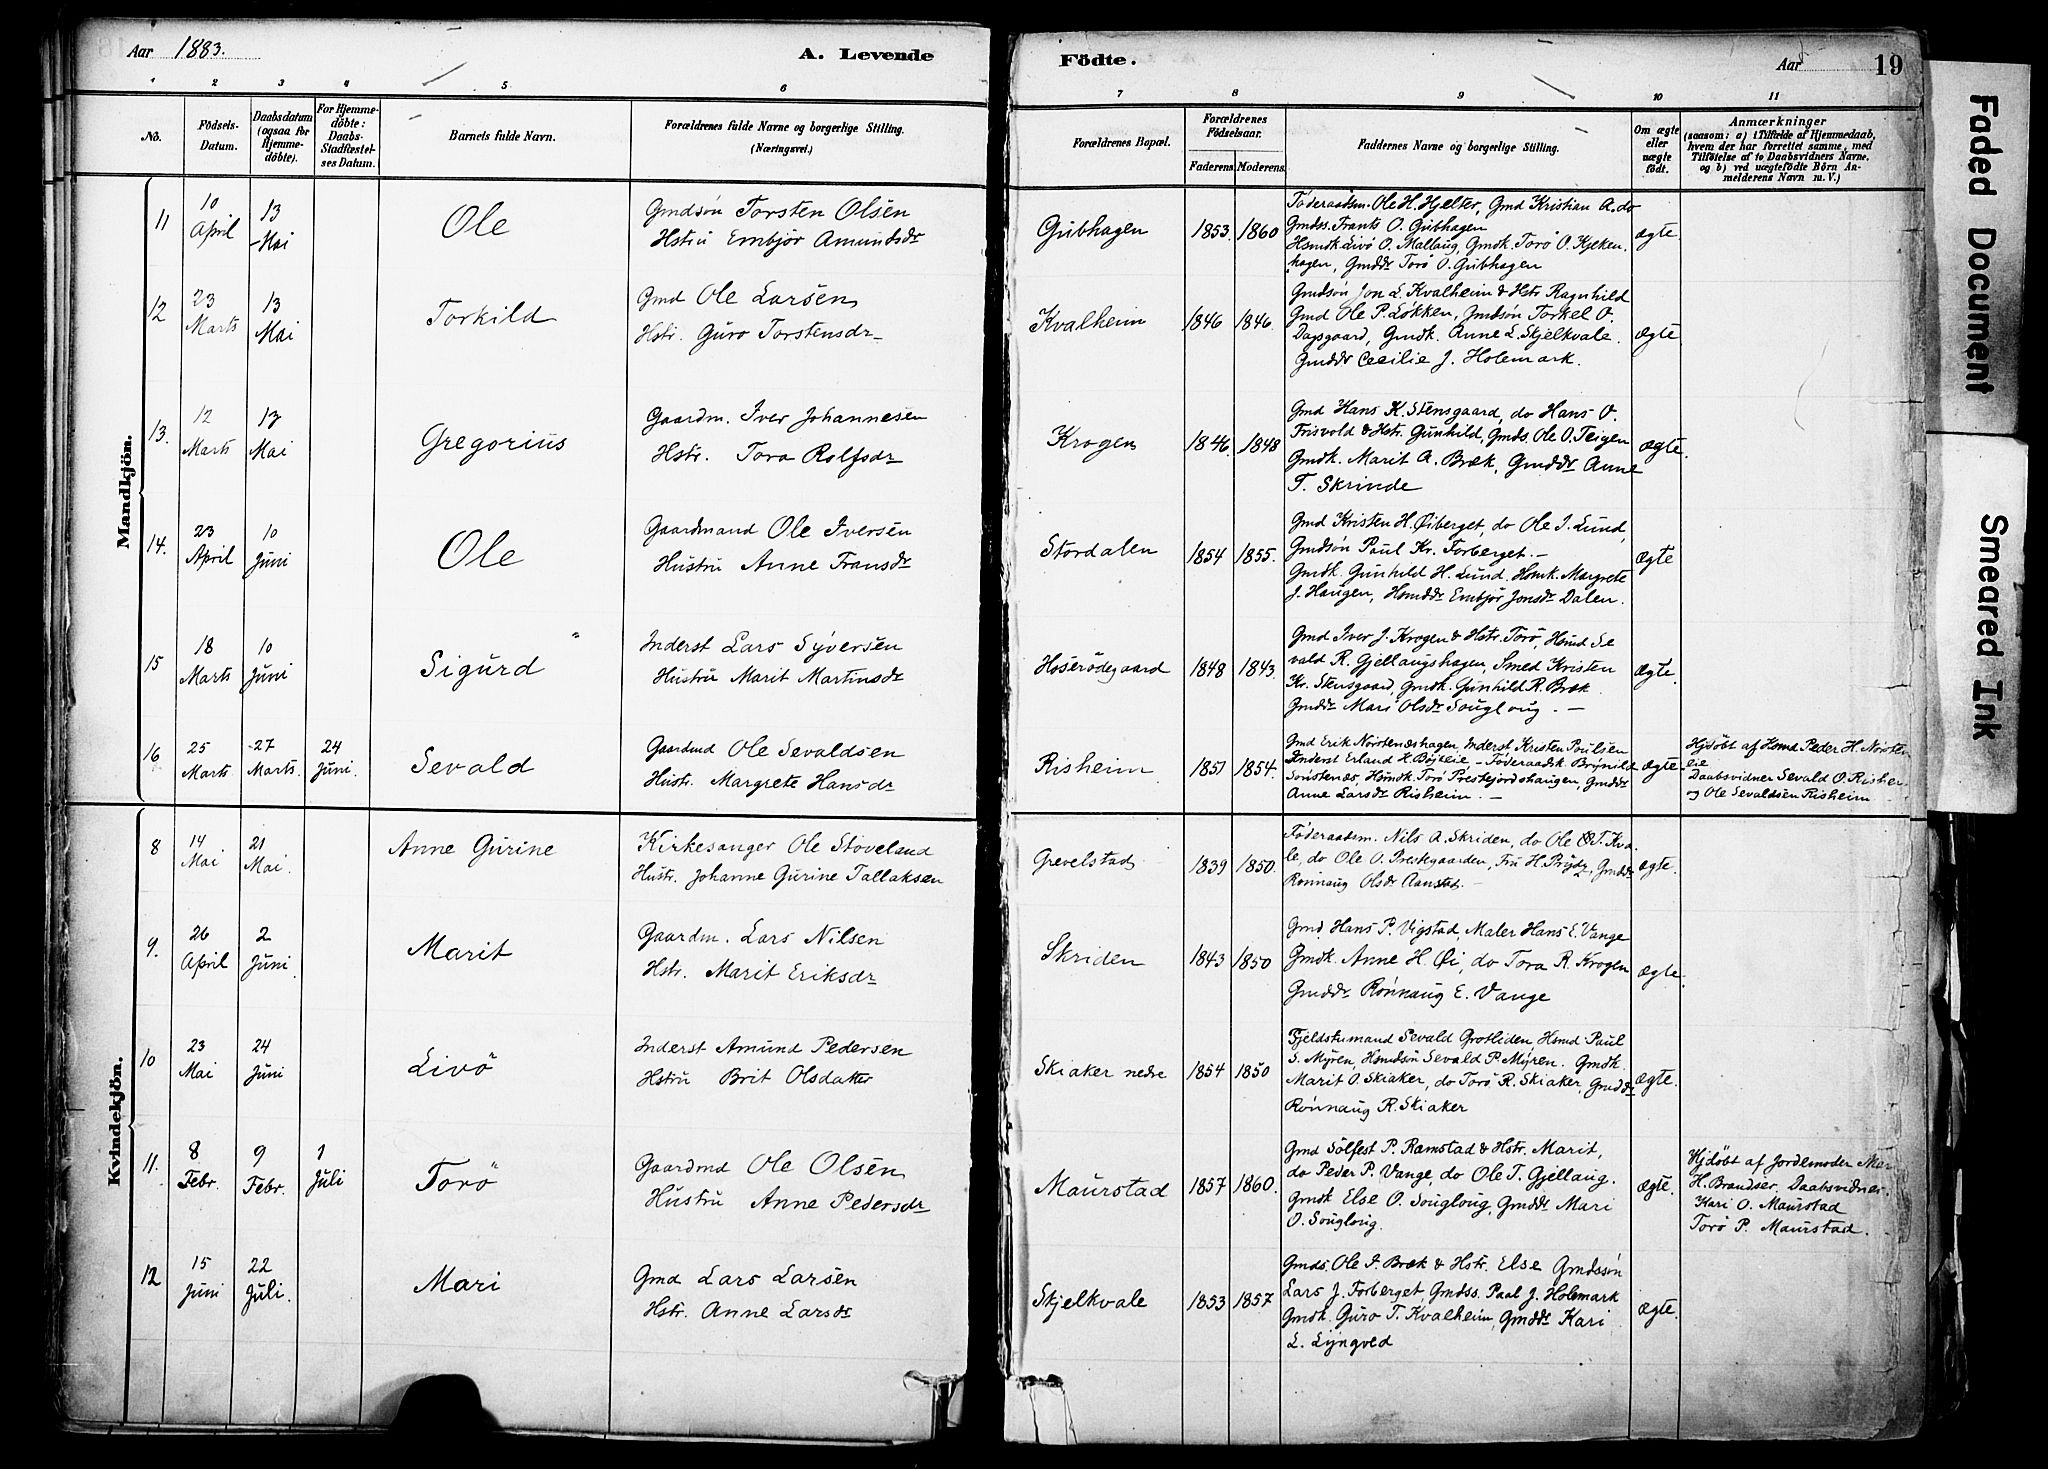 Aar 1883.
A. Levende
Födte.
Aar
19
1 2 3 4 5 6
7 8 9 10 11
No.
Födsels-Datum.
Daabsdatum (ogsaa for Hjemmedöbte).
For Hjemmedöbte: Daabs-Stadfæstelses Datum.
Barnets fulde Navn.
Forældrenes fulde Navne og borgerlige Stilling.
(Næringsvei.)
Forældrenes Bopæl.
Forældrenes Födselsaar.
Faderens. Moderens.
Faddernes Navne og borgerlige Stilling.
Om ægte eller uægte födt.
Anmærkninger
(saasom: a) i Tilfælde af Hjemmedaab,
hvem der har forrettet samme, med
Tilföielse af to Daabsvidners Navne.
og b) ved uægtefödte Börn Anmelderens Navn m. V.)
Mandkjön.
11 10 April 13 Mai Ole
Gmdsön Torsten Olsen
Hstru Embjør Amundsdr
Gubhagen 1853. 1860
Føderaadsm. Ole H. Hjelter, Gmd Kristian A. do
Gmdss. Frants O. Gubhagen
Hsmdk Livö O. Mallaug, Gmdk. Torö O. Kjeken
hagen, Gmddr Torö O. Gubhagen
ægte.
12 23 Marts 13 Mai Torkild
Gmd Ole Larsen
Hstr. Guro Torstensdr
Kvalheim 1846 1846.
Gmdsön Jon L. Kvalheim & Hstr Ragnhild
Gmd Ole P. Løkken, Gmdsön Torkel O.
Dagsgaard, Gmdk. Anne L. Skjelkvale.
Gmddr Cecilie J. Holemark.
ægte
13. 12 Marts 13 Mai Gregorius
Gaardm. Iver Johannesen
Hstr. Tora Rolfsdr
Krogen 1846. 1848
Gmd Hans K. Stensgaard, do Hans O.
Frisvold & Hstr. Gunhild, Gmds. Ole O. Teigen
Gmdk. Marit A. Bræk, Gmddr Anne
T. Skrinde
ægte.
14. 23 April 10 Juni Ole
Gaardmand Ole Iversen
Hustru Anne Fransdr
Stordalen 1854 1855.
Gmd Kristen H. Øiberget, do Ole I. Lund,
Gmdsön Paul Kr. Forberget.
Gmdk. Gunhild H. Lund. Hsmk. Margrete
J. Haugen, Hsmddr Embjør Jonsdr Dalen.
ægte
15 18 Marts 10 Juni Sigurd
Inderst Lars Syversen
Hustru Marit Martinsdr
Hoserödegaard 1848 1843.
Gmd Iver J. Krogen & Hstr. Torö, Hsmd Se
vald R. Gjellaugshagen, Smed Kristen
Kr. Stensgaard, Gmdk. Gunhild R. Bræk
Gmddr Mari Olsdr Sougloug.
ægte.
16 25 Marts 27 Marts. 24 Juni. Sevald
Gaardmd Ole Sevaldsen
Hustr. Margrete Hansdr
Risheim 1851 1854.
Gmd Erik Norstenæshagen, Inderst Kristen Poulsen
Inderst Erland H. Böjeie, Föderaadsk. Brynild
Sorstenæs, Hsmdk. Torö Prestejordshaugen, Gmddr
Anne Larsdr Risheim.
ægte
Hjdöbt af Hsmd Peder H. Norsten
eie
Daabsvidner Sevald O. Rishei
og Ole Sevaldsen Risheim
Kvindekjön.
8 14 Mai 21 Mai. Anne Gurine
Kirkesanger Ole Stoveland
Hustr. Johanne Gurine Tallaksen
Grevelstad 1839 1850.
Föderaadsm. Nils A. Skriden, do Ole T. Kva
le, do Ole O. Prestegaarden, Fru H. Brydz, Gmddr
Rönnaug Olsdr Aanstad.
ægte.
9. 26 April 2 Juni Marit
Gaardm. Lars Nilsen
Hstr. Marit Eriksdr
Skriden 1843 1850
Gmd. Hans P. Vigstad, Maler Hans E. Vange
Gmdk. Anne H. Øi, do Tora R. Krogen
Gmddr Rönnaug E. Vange
ægte.
10 23 Mai 24 Juni Livö
Inderst Amund Pedersen
Hstru Brit Olsdatter
Skiaker nedre 1854 1850
Fjeldstumand Sevald Grotliden, Hsmd Paul
S. Myren, Hsmdsön Sevald P. Myren. Gmdk.
Marit O. Skiaker, do Torö R. Skiaker, Gmddr
Rönnaug R. Skiaker
ægte.
11. 8 Febr. 9 Febr. 1 Juli Torö
Gaardmd Ole Olsen
Hustru Anne Pedersdr
Maurstad 1857 1860.
Gmd Sölfest P. Ramstad & Hstr. Marit,
do Peder P. Vange, do Ole T. Gjellaug.
Gmdk Else O. Sougloug, Gmddr Mari
O. Souglong.
ægte.
Hjdöbt af Jordemoder Mar
H. Brandser, Daabsvidner.
Kari O. Maurstad
Torö P. Maurstad.
12 15 Juni 22 Juli. Mari
Gmd Lars Larsen
Hstr. Anne Larsdr
Skjelkvale 1853 1857
Gmds. Ole I. Bræk & Hstr. Else Gmdssön
Lars J. Forberget, Gmdss. Paal J. Holemark
Gmdk. Guro T. Kvalheim, Gmddr Kari
L. Lyngved
ægte.
Faded Document
Smeared Ink